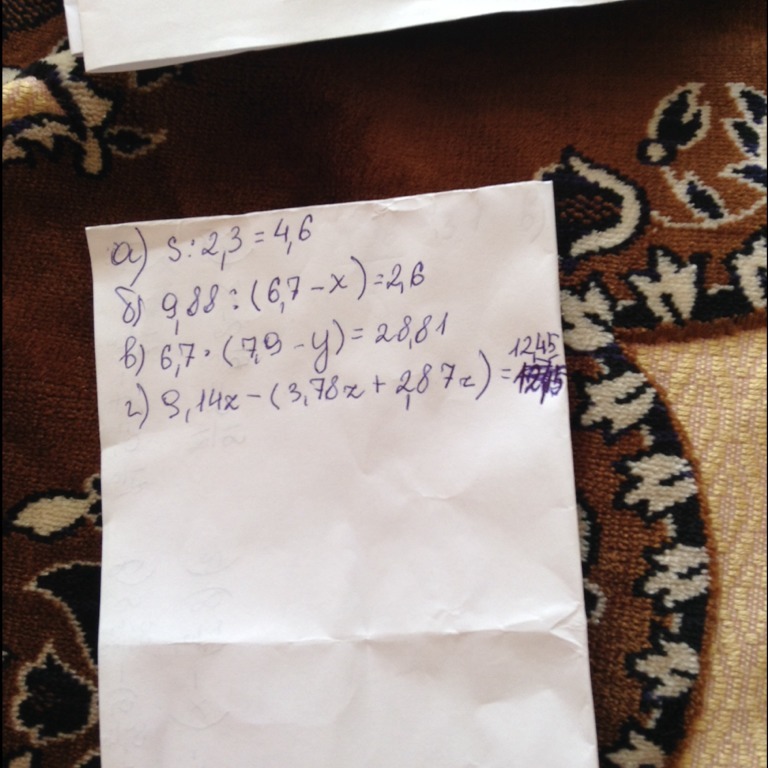 а) s : 2,3 = 4,6
б) 9,88 : (6,7 - x) = 2,6
в) 6,7 · (7,9 - y) = 28,81
г) 9,14x - (3,78x + 2,87x) = 12,45